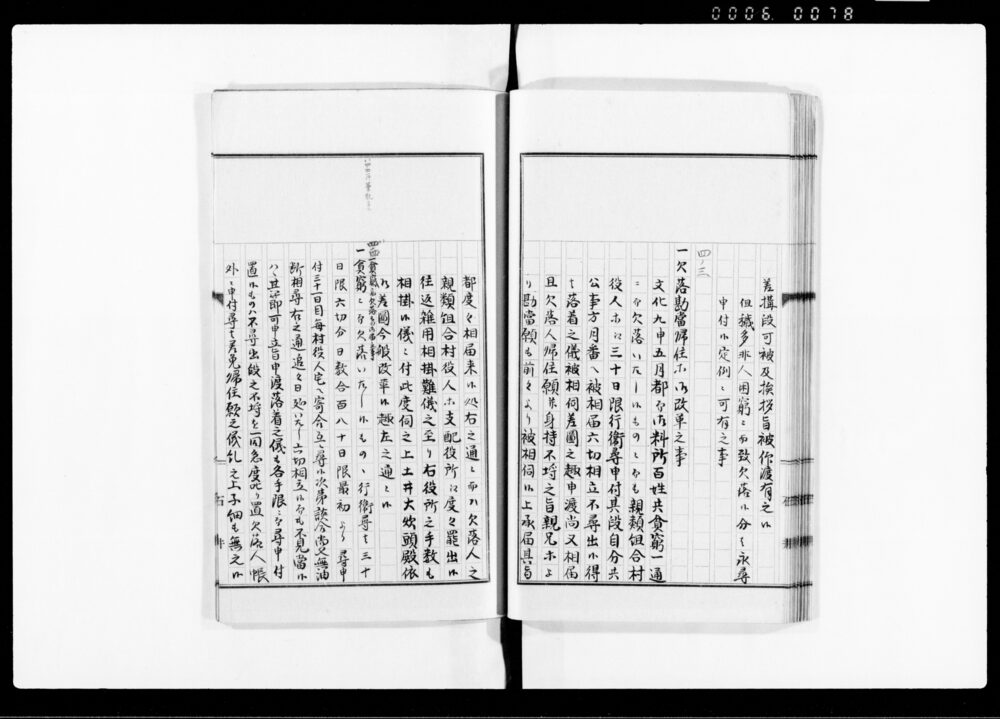 0006. 0078
差構段可被及挨拶旨被仰渡有之候
但穢多非人困窮ニ而致欠落候分ハ永尋
申付候定例ニ可有之事
四ノ三
一欠落勘當帰住ホ御改革之事
文化九申五月都而御料所百姓共貧窮一通
ニ而欠落いたし候ものニ而も親類組合村
役人ホ江三十日限行衛尋申付其段自分共
公事方月番へ被相届六切相立不尋出候得
ハ落着之儀被相伺差圖之趣申渡尚又相届
且欠落人帰住願并身持不埒之旨親兄ホよ
り勘當願も前々より被相伺候上承届其旨
都度々相届来候処右之通ニ而ハ欠落人之
親類組合村役人ホ支配役所江度々罷出候
往返雑用相掛難儀之至り右役所之手数も
相掛候儀ニ付此度伺之上土井大炊頭殿依
御差圖今般改革候趣左之通ニ候
一貧窮ニ而欠落いたし候ものハ行衛尋ハ三十
日限六切分日数合百八十日限最初より尋申
付三十一日目毎村役人宅へ寄合立尋候次第談合尚又無油
断相尋右之通追々日延いたし六切相立候而も不見當候
ハヽ其節可申立旨申渡落着之儀も各手限ニ而尋申付
置候ものハ不尋出段之不埒を一同急度叱り置欠落人帳
外ニ申付尋ハ差免帰住願之儀糺之上子細も無之候